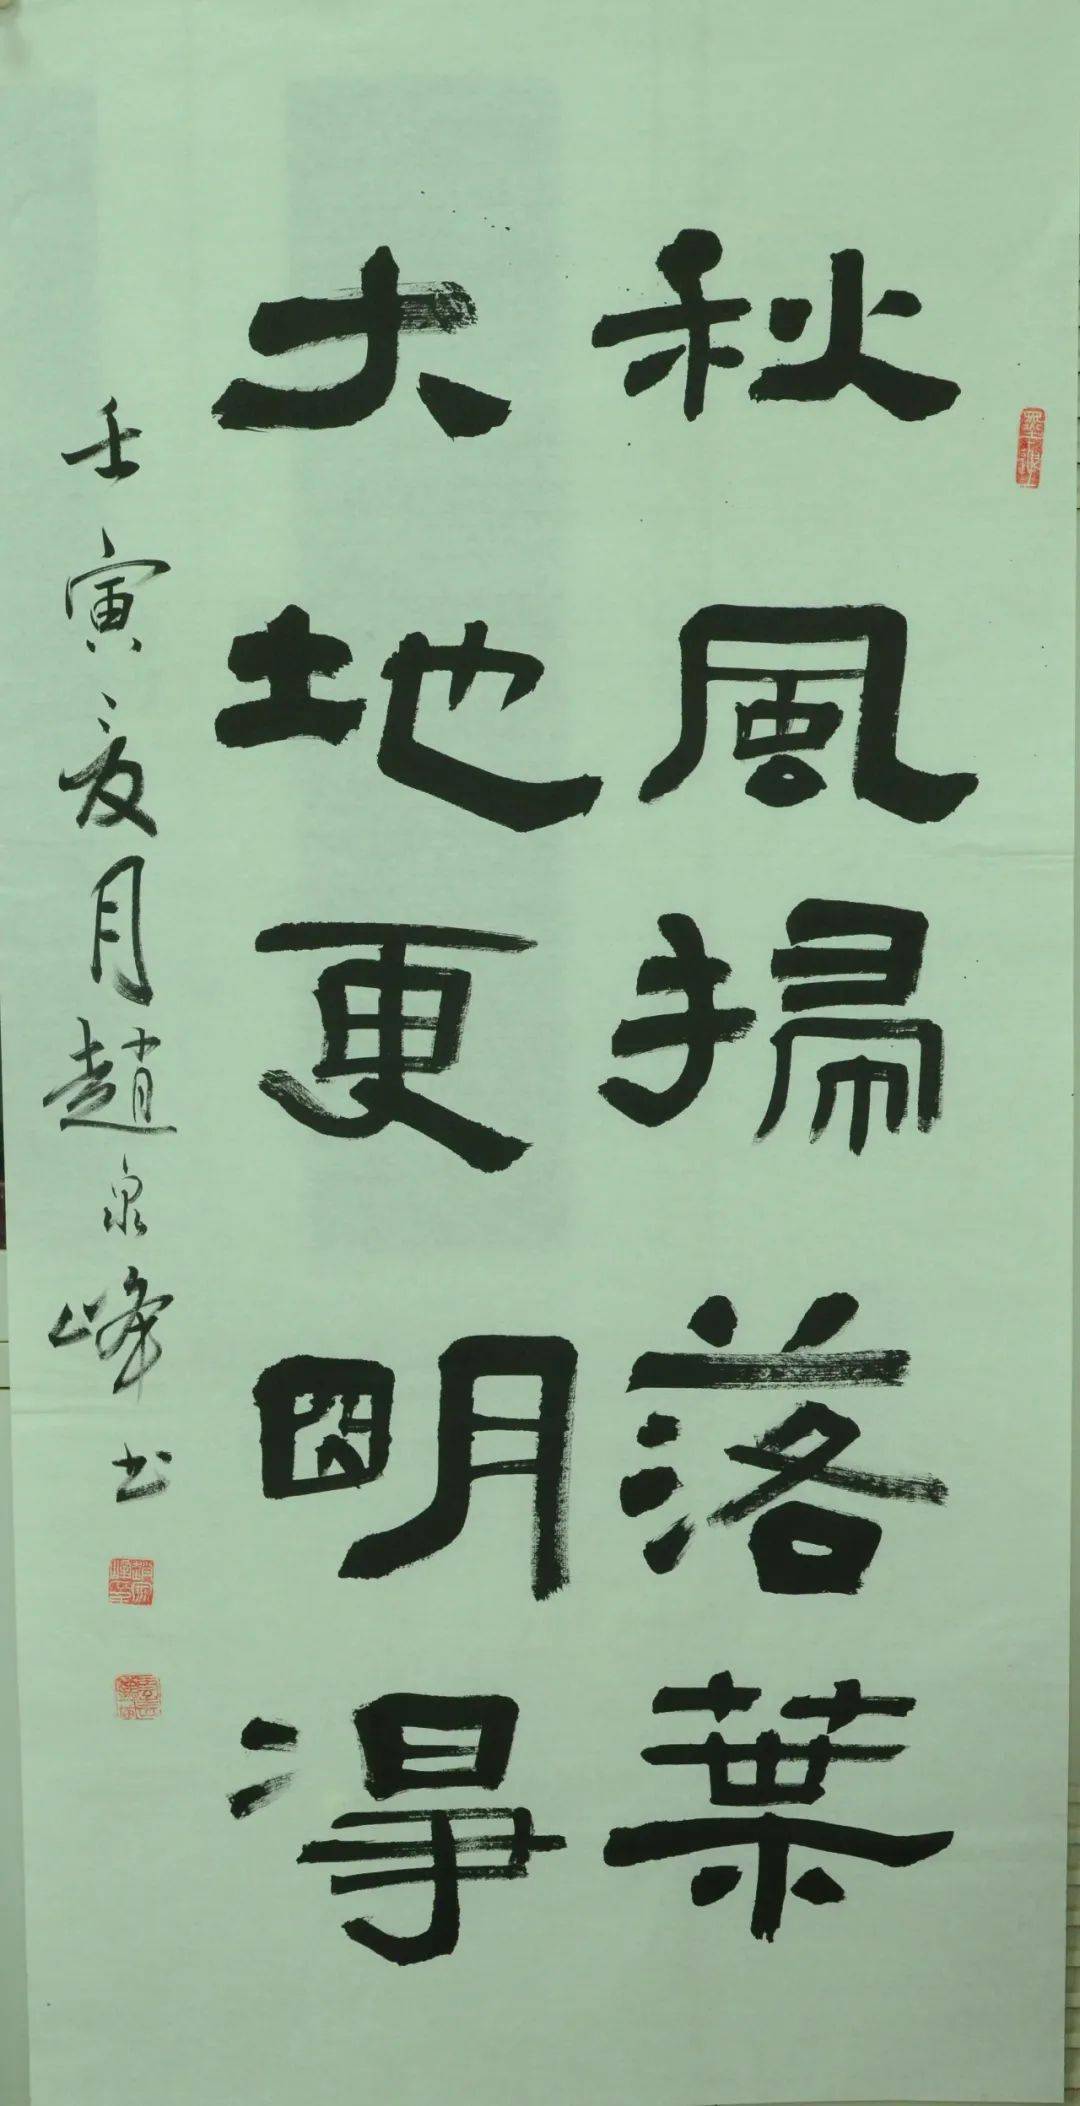 秋風掃落葉
大地更明凈
壬寅夏月趙泉峰书